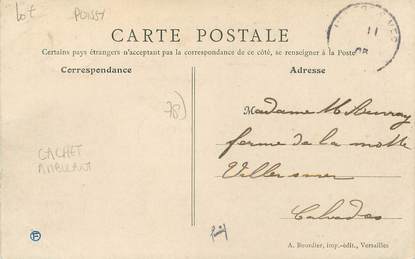 lot POISSY
CARTE POSTALE
Certains pays étrangers n'acceptant pas la correspondance de ce côté, se renseigner à la Poste
Correspondance
Adresse
78)
CACHET
AMBULANT
Madame
ferme de la motte
Villers mer
Calvados
A. Bourdier, imp.-édit., Versailles